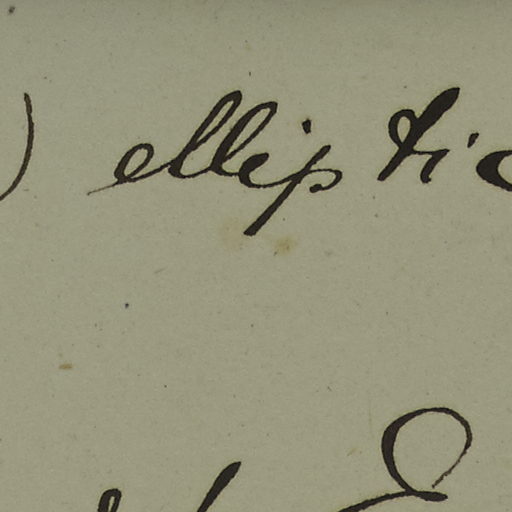 ) elliptic